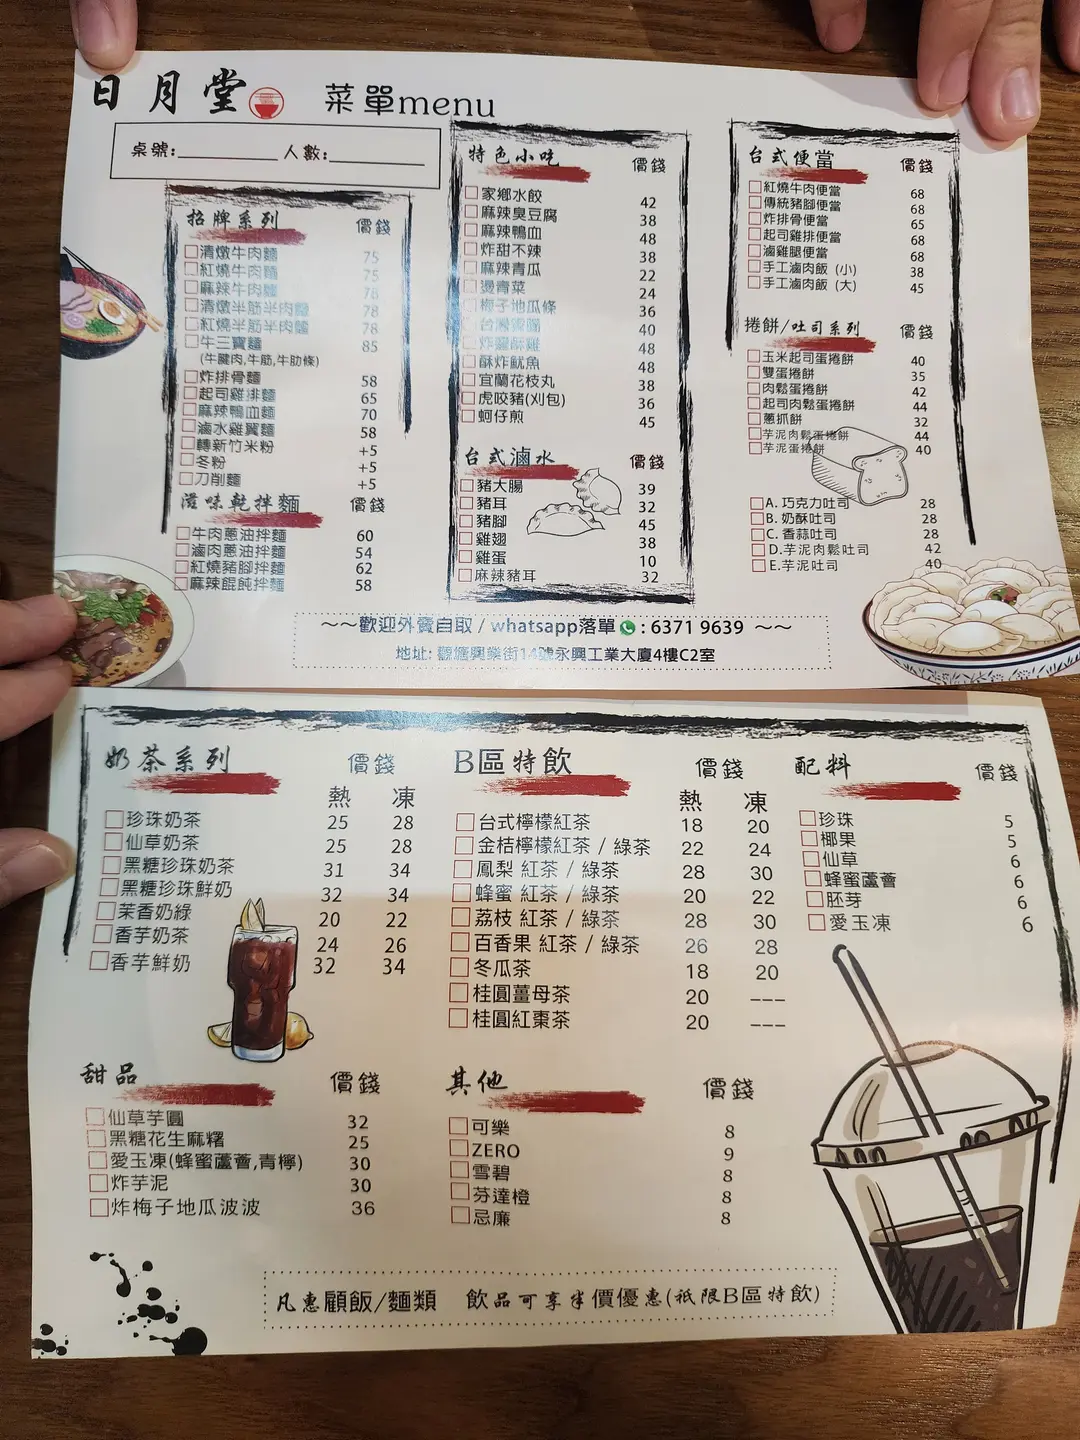 日月堂 菜單menu
桌號:________ 人數:________
招牌系列 價錢
清燉牛肉麵 75
紅燒牛肉麵 75
麻辣牛肉麵 78
清燉半筋半肉麵 78
紅燒半筋半肉麵 78
牛三寶麵 85
(牛腱肉,牛筋,牛肋條)
炸排骨麵 58
起司雞排麵 65
麻辣鴨血麵 70
滷水雞翼麵 58
轉新竹米粉 +5
冬粉 +5
刀削麵 +5
滋味乾拌麵 價錢
牛肉蔥油拌麵 60
滷肉蔥油拌麵 54
紅燒豬腳拌麵 62
麻辣餛飩拌麵 58
特色小吃 價錢
家鄉水餃 42
麻辣臭豆腐 38
麻辣鴨血 48
炸甜不辣 38
麻辣青瓜 22
燙青菜 24
梅子地瓜條 36
台灣香腸 40
炸鹽酥雞 48
酥炸魷魚 48
宜蘭花枝丸 38
虎咬豬(刈包) 36
蚵仔煎 45
台式滷水 價錢
豬大腸 39
豬耳 32
豬腳 45
雞翅 38
雞蛋 10
麻辣豬耳 32
台式便當 價錢
紅燒牛肉便當 68
傳統豬腳便當 68
炸排骨便當 65
起司雞排便當 68
滷雞腿便當 68
手工滷肉飯 (小) 38
手工滷肉飯 (大) 45
捲餅/吐司系列 價錢
玉米起司蛋捲餅 40
雙蛋捲餅 35
肉鬆蛋捲餅 42
起司肉鬆蛋捲餅 44
蔥抓餅 32
芋泥肉鬆蛋捲餅 44
芋泥蛋捲餅 40
A. 巧克力吐司 28
B. 奶酥吐司 28
C. 香蒜吐司 28
D.芋泥肉鬆吐司 42
E.芋泥吐司 40
~~歡迎外賣自取 / whatsapp落單 : 6371 9639 ~~
地址: 觀塘興業街14號永興工業大廈4樓C2室
奶茶系列 價錢
熱 凍
珍珠奶茶 25 28
仙草奶茶 25 28
黑糖珍珠奶茶 31 34
黑糖珍珠鮮奶 32 34
茉香奶綠 20 22
香芋奶茶 24 26
香芋鮮奶 32 34
B區特飲 價錢
熱 凍
台式檸檬紅茶 18 20
金桔檸檬紅茶 / 綠茶 22 24
鳳梨 紅茶 / 綠茶 28 30
蜂蜜 紅茶 / 綠茶 20 22
荔枝 紅茶 / 綠茶 28 30
百香果 紅茶 / 綠茶 26 28
冬瓜茶 18 20
桂圓薑母茶 20 ---
桂圓紅棗茶 20 ---
配料 價錢
珍珠 5
椰果 5
仙草 6
蜂蜜蘆薈 6
胚芽 6
愛玉凍 6
甜品 價錢
仙草芋圓 32
黑糖花生麻糬 25
愛玉凍(蜂蜜蘆薈,青檸) 30
炸芋泥 30
炸梅子地瓜波波 36
其他 價錢
可樂 8
ZERO 9
雪碧 8
芬達橙 8
忌廉 8
凡惠顧飯/麵類 飲品可享半價優惠(祇限B區特飲)